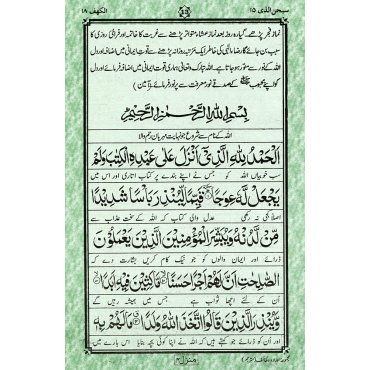 سبحن الذی ۱۵ الکھف ۱۸
نماز فجر پڑھے۔ گیارہ روز بعد نماز عشاء متواتر پڑھنے سے غربت کا خاتمہ اور فراخی روزی کا
سبب بن جائے گا۔ رضا الٰہی کی خاطر ایک مرتبہ روزانہ پڑھنے سے قوت ایمانی میں اضافہ اور دل
اللہ کے نور سے منور ہو جاتا ہے۔ اللہ تبارک و تعالیٰ ہماری قوت ایمانی میں اضافہ اور دل
کو اپنے محبوب ﷺ کے صدقے نور معرفت سے پر نور فرمائے۔ (آمین)
بِسْمِ اللهِ الرَّحْمٰنِ الرَّحِيْمِ
اللہ کے نام سے شروع جو نہایت مہربان رحم والا
اَلْحَمْدُ لِلّٰهِ الَّذِيْٓ اَنْزَلَ عَلٰى عَبْدِهِ الْكِتٰبَ وَلَمْ
سب خوبیاں اللہ کو جس نے اپنے بندے پر کتاب اتاری اور اس میں
يَجْعَلْ لَّهٗ عِوَجًا ۞ قَيِّمًا لِّيُنْذِرَ بَاْسًا شَدِيْدًا
اصلا کجی نہ رکھی عدل والی کتاب کہ اللہ کے سخت عذاب سے
مِّنْ لَّدُنْهُ وَيُبَشِّرَ الْمُؤْمِنِيْنَ الَّذِيْنَ يَعْمَلُوْنَ
ڈرائے اور ایمان والوں کو جو نیک کام کریں بشارت دے کہ
الصّٰلِحٰتِ اَنَّ لَهُمْ اَجْرًا حَسَنًا ۞ مَّاكِثِيْنَ فِيْهِ اَبَدًا ۞
ان کے لئے اچھا ثواب ہے جس میں ہمیشہ رہیں گے
وَّيُنْذِرَ الَّذِيْنَ قَالُوا اتَّخَذَ اللهُ وَلَدًا ۞ مَا لَهُمْ بِهٖ
اور ان کو ڈرائے جو کہتے ہیں کہ اللہ نے اپنا کوئی بچہ بنایا اس بارے میں
منزل ۴